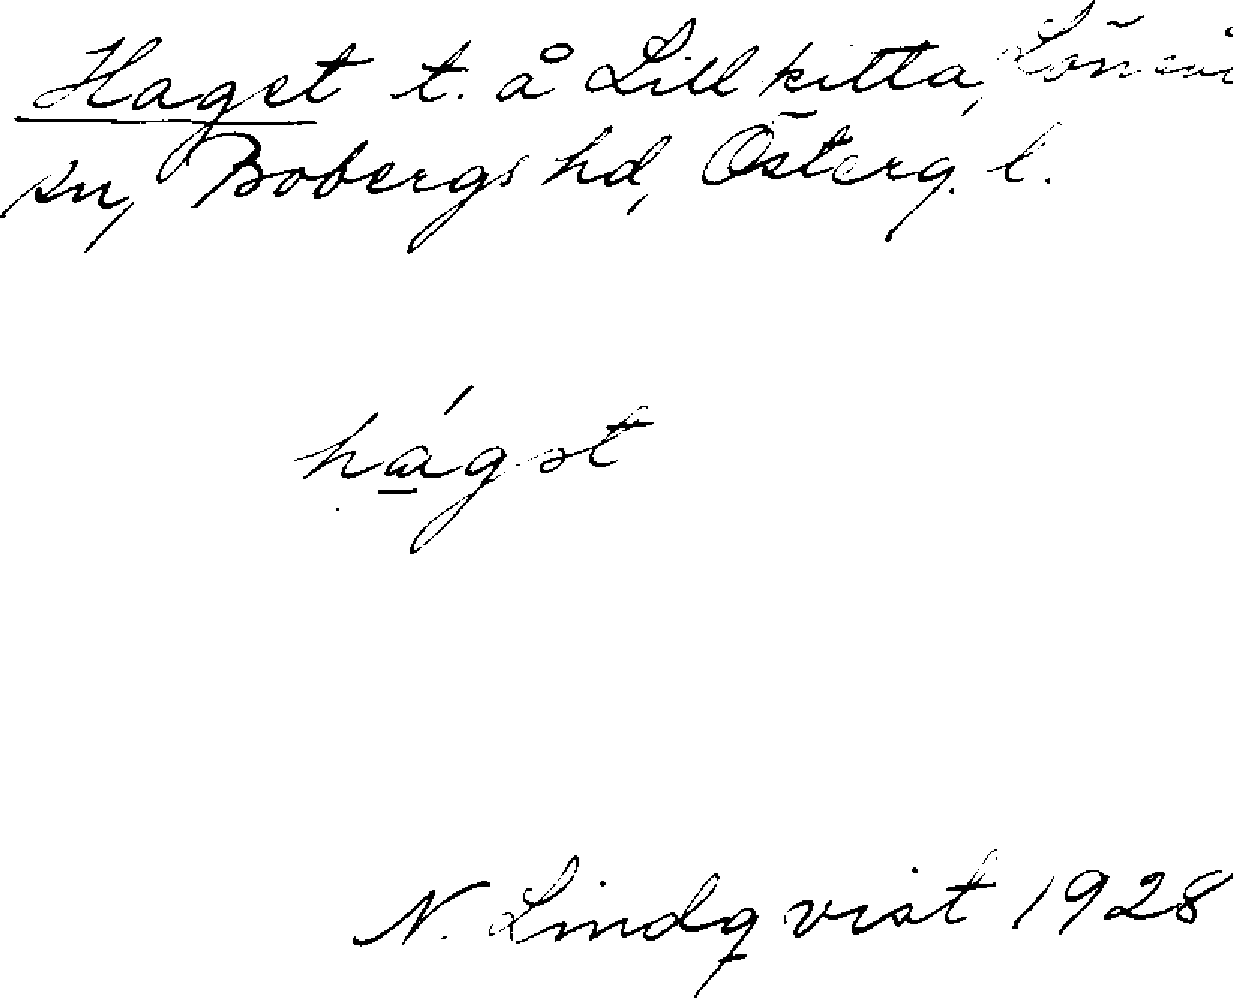 Haget t. å Lillkitta,
sn, Bobergs hd, Österg. l.
hágət
N. Lindqvist 1928